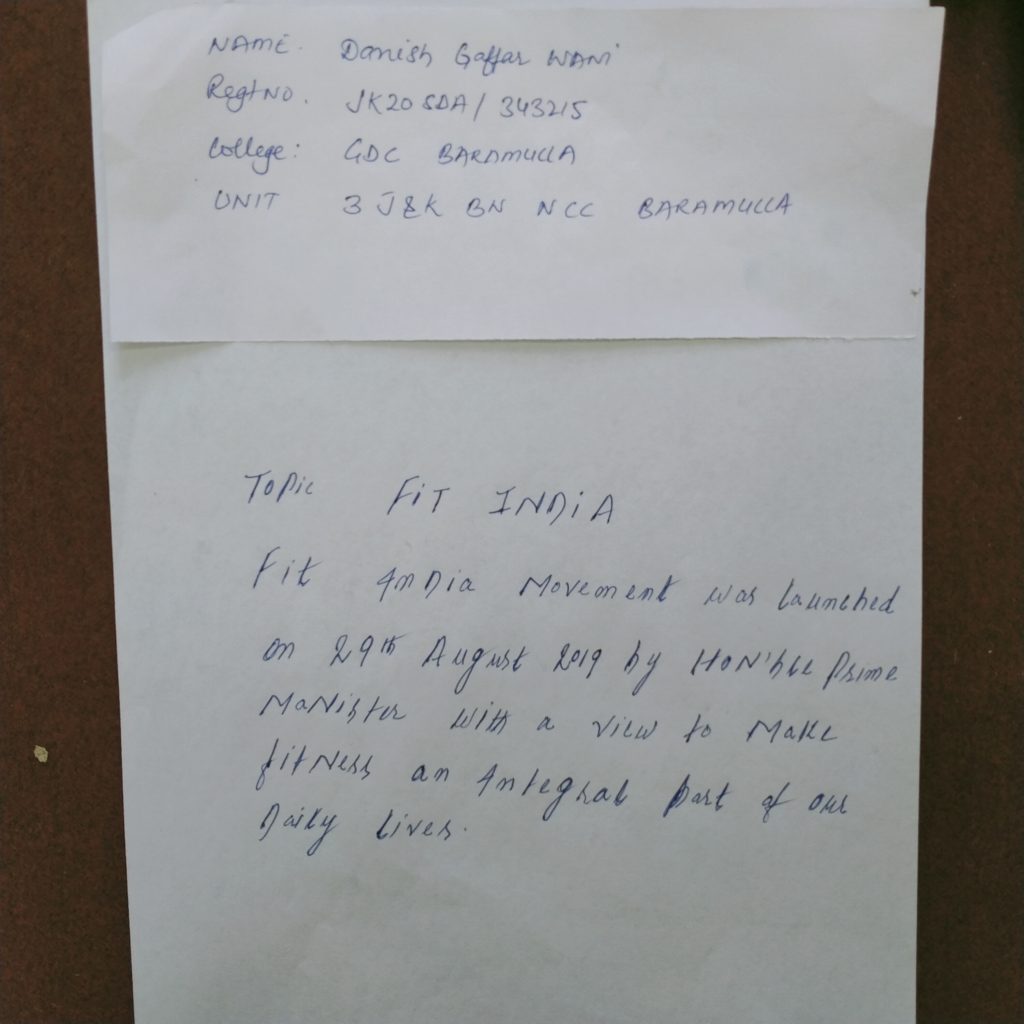 NAME. Danish Gaffar WANI
RegtNo. JK20SDA/343215
College: GDC BARAMULLA
UNIT 3 J&K BN NCC BARAMULLA
Topic FiT INDiA
Fit InDia Movement was launched
on 29th August 2019 by HON'ble Prime
MaNister with a view to Make
fitNess an Integral part of our
Daily lives.